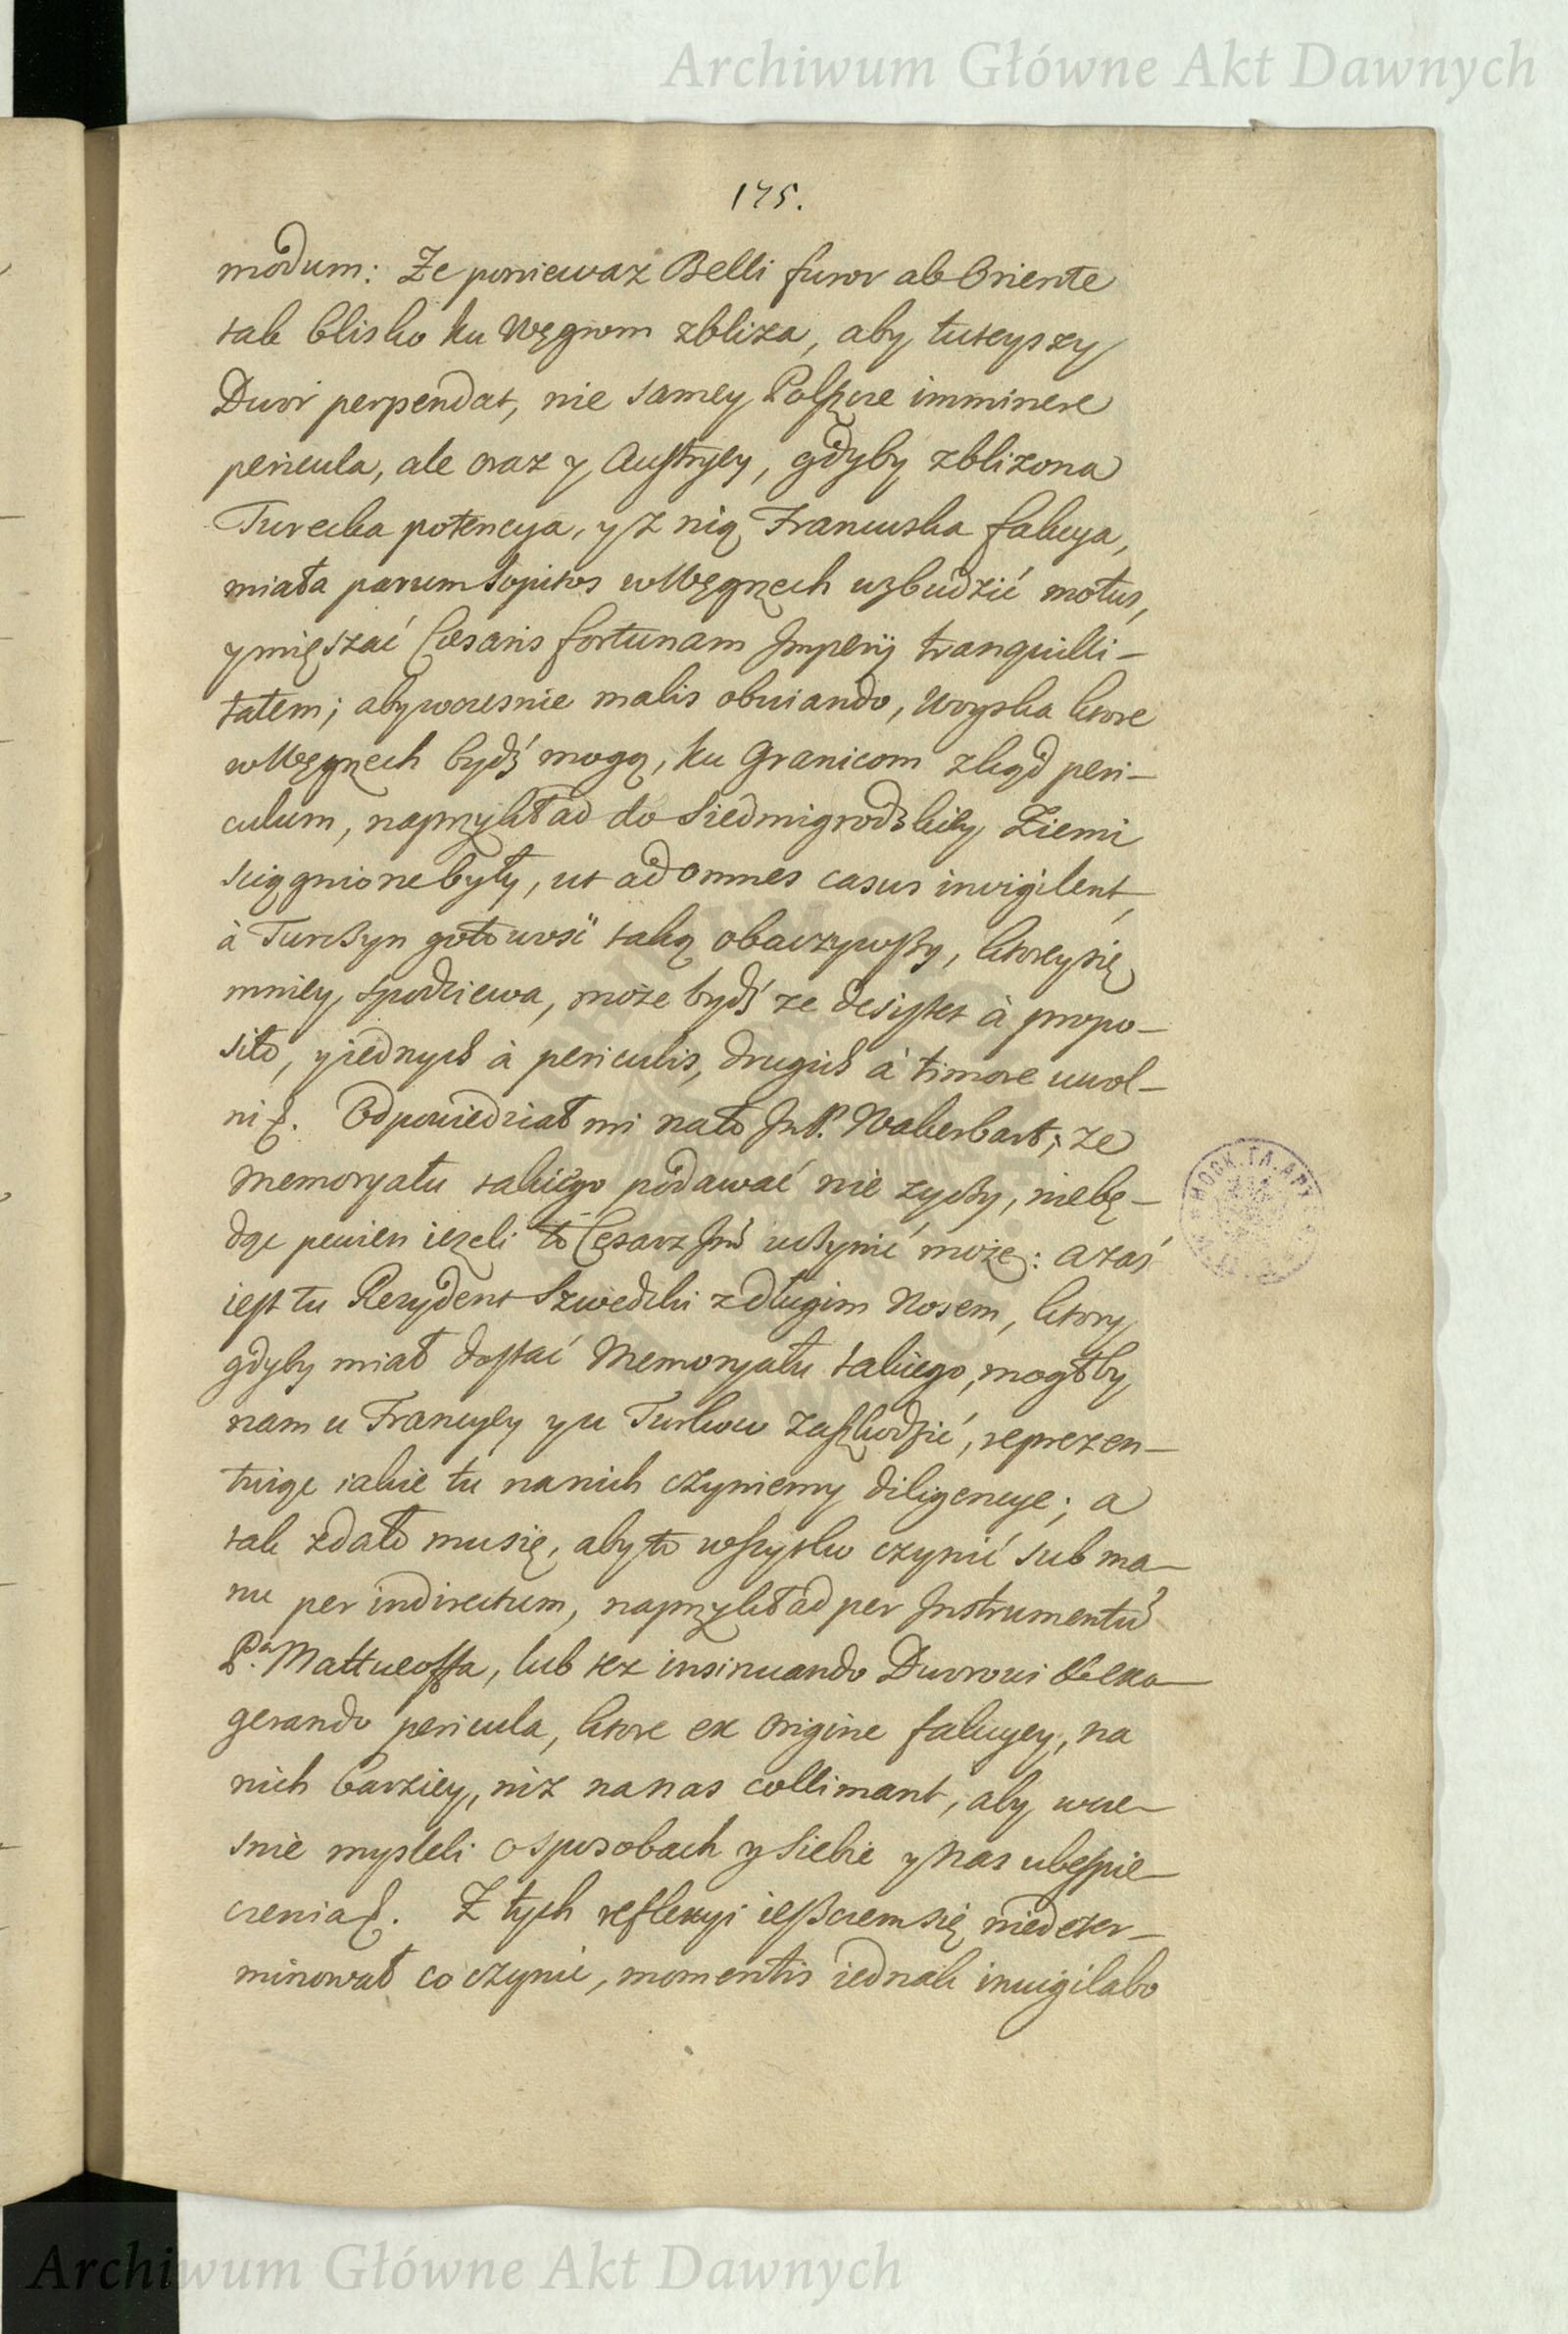 Archiwum Główne Akt Dawnych
175.
modum: Że ponieważ Belli furor ab Oriente
tak blisko ku Węgrom zbliża, aby tuteyszy
Dwór perpendat, nie samey Polszcze imminere
pericula, ale oraz y Austryey, gdyby zbliżona
Turecka potencya, y z nią Francuska fakcya,
miała parum sopitos w Węgrzech wzbudzić motus,
y mięszać Cæsaris fortunam Imperij tranquilli-
tatem; aby wcześnie malis obviando, Woyska ktore
w Węgrzech bydź mogą, ku Granicom zkąd peri-
culum, naprzykład do Siedmigrodzkiey Ziemi
sciągnione były, ut ad omnes casus invigilent,
à Turczyn gotowość taką obaczywszy, ktorey się
mniey spodziewa, może bydź że desistet à propo-
sito, y iednych à periculis, drugich à timore uwol-
ni. Odpowiedział mi na to JmP. Wakerbart; że
memoryału takiego podawać nie życzy, niebę-
dąc pewien ieżeli to Cesarz Jmć uczynić może: a zaś
iest tu Rezydent Szwedzki z długim Nosem, ktory
gdyby miał dostać Memoryału takiego, mogłby
nam u Francyey y u Turkow zaszkodzić, reprezen-
tuiąc iakie tu na nich czyniemy diligencye; a
tak zdało mu się, aby to wszystko czynić sub ma-
nu per indirectum, naprzykład per Instrumentū
Pa. Mattueoffa, lub tez insinuando Dworowi & exa-
gerando pericula, ktore ex origine fakcyey, na
nich barziey, niż na nas collimant, aby wcze-
snie mysleli o sposobach y siebie y nas ubespie-
czenia. Z tych reflexyi ieszczem się niedeter-
minował co czynić, momentis iednak invigilabo
МОСК. ГЛ. АРХ.
Archiwum Główne Akt Dawnych